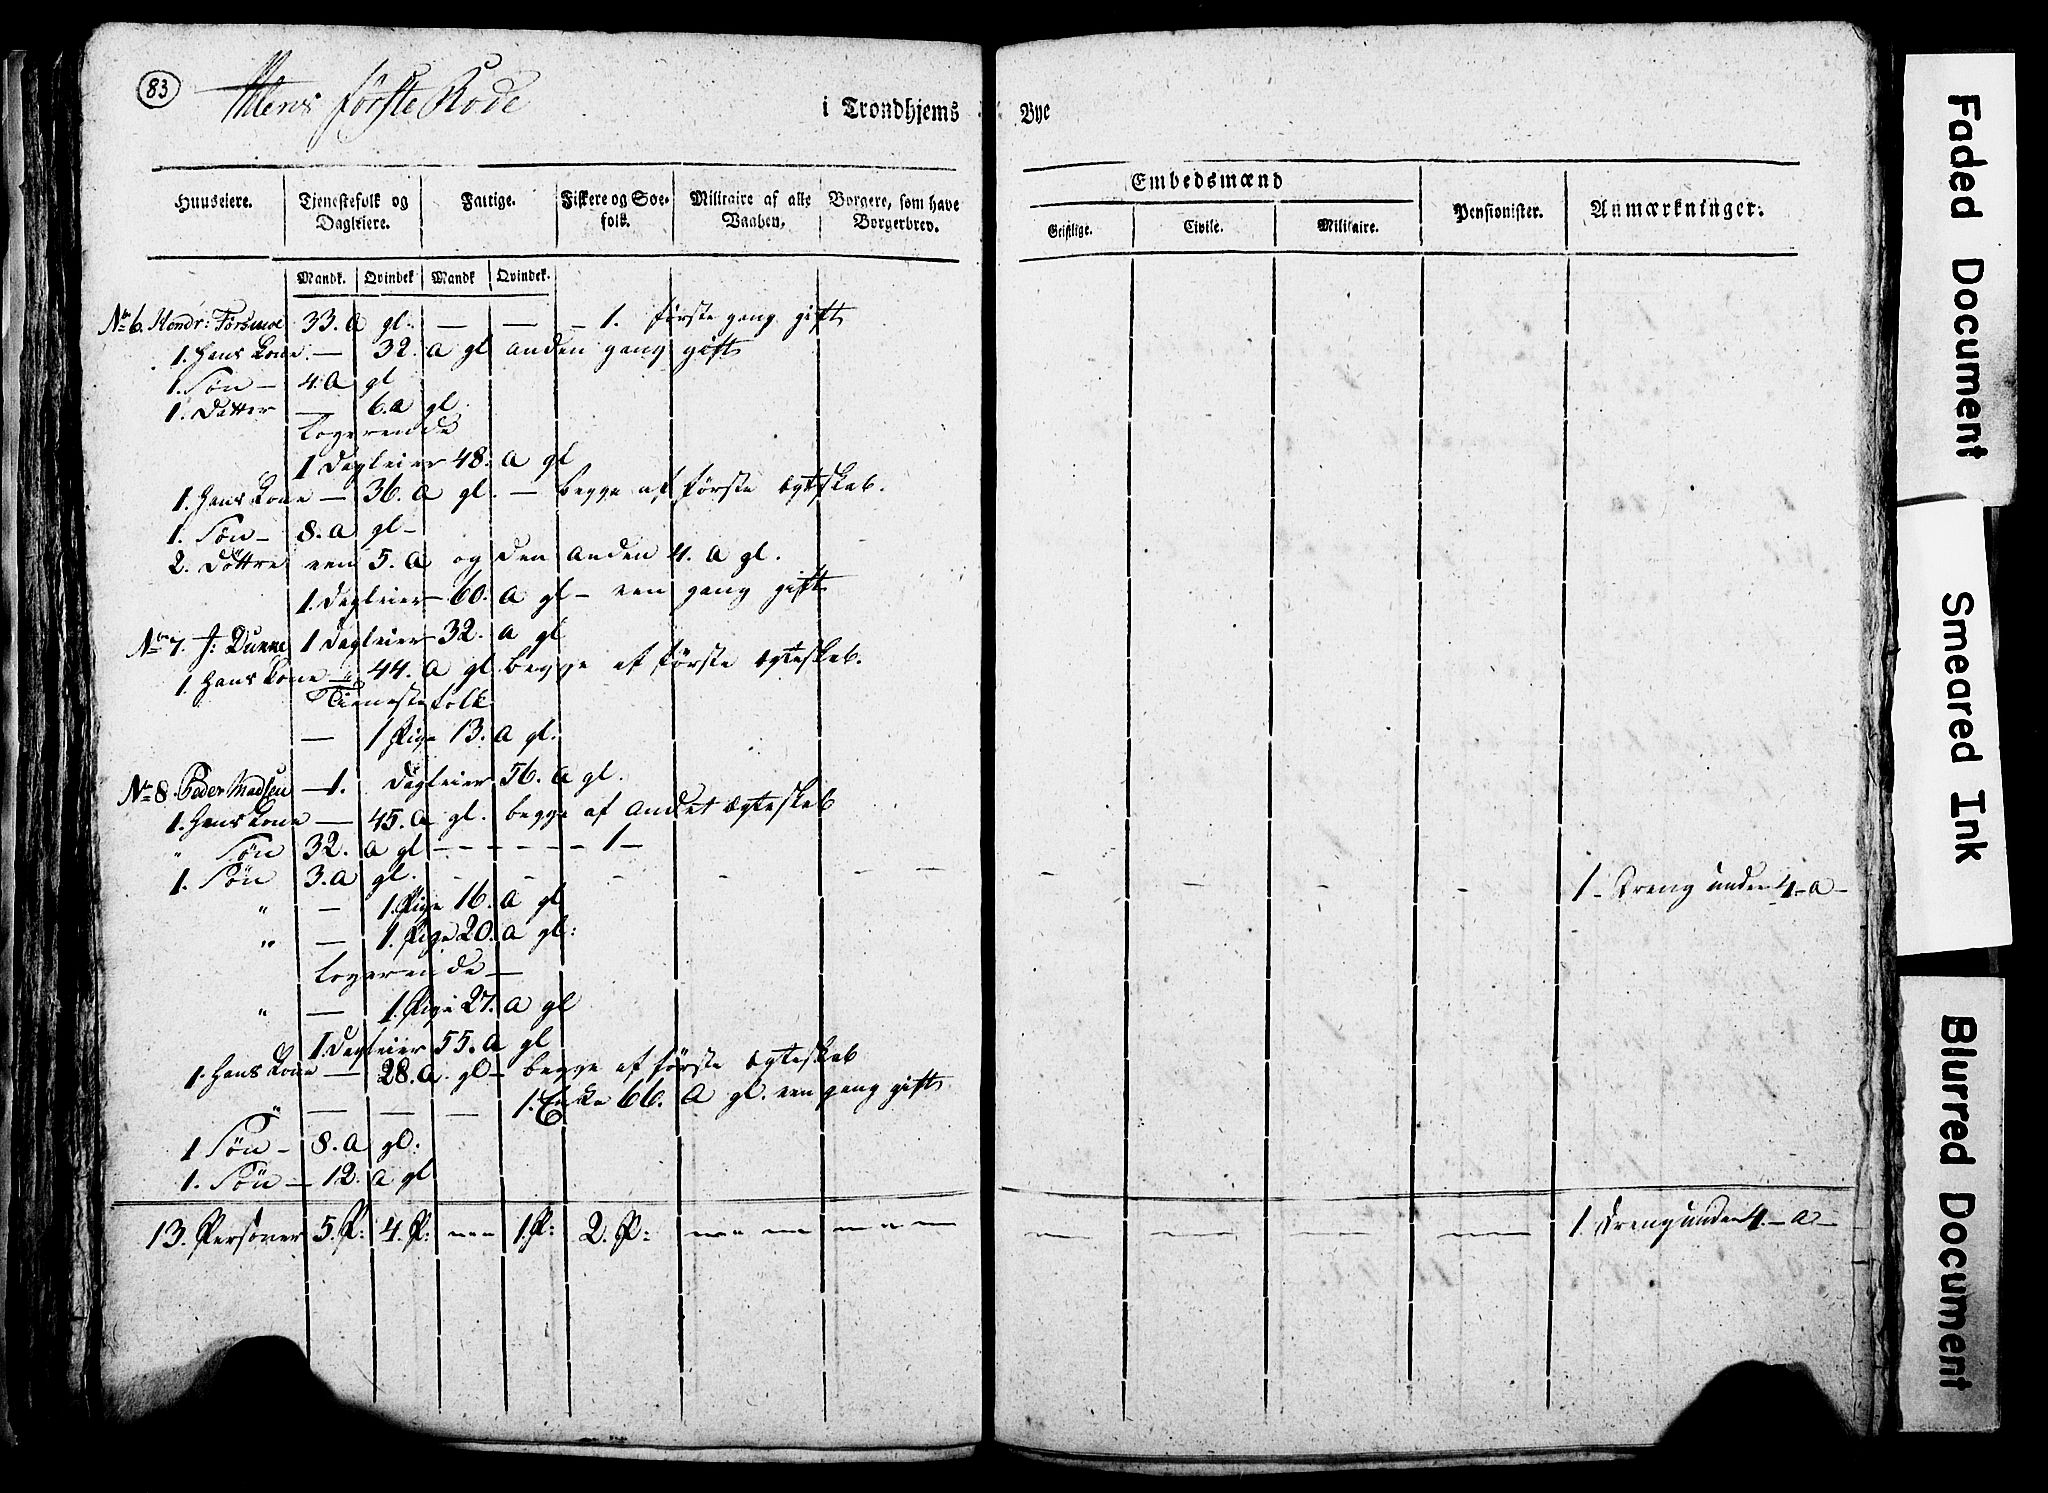 83
Ihlens første Rode
i Trondhjems
Bye
Embedsmænd
Huuseiere.
Tjenestefolk og Dagleiere.
Fattige.
Fiskere og Søefolk.
Militaire af alle Vaaben.
Borgere, som have Borgerbrev.
Geistlige.
Civile.
Militaire.
Pensionister.
Anmærkninger.
Mandk. Qvindek Mandk Qvindek.
No 6. Hendr: Forsmoe 33. a gl. — — — 1. første gang gift
1. Hans Kone — 32. a gl anden gang gift
1. Søn — 4. a gl
1. Datter — 6. a gl.
Logerende
1 Dagleier 48. a gl
1. Hans Kone — 36. a gl. — begge af første Ægteskab.
1. Søn — 8. a gl —
2. Døttre een 5. a og den anden 4. a gl.
1. Dagleier — 60. a gl — een gang gift
No 7. J: 1 Dagleier 32. a gl
1. Hans Kone — 44. a gl begge af første Ægteskab.
Tienestefolk
— 1 Pige 13. a gl.
No 8. Peder Madsen — 1. Dagleier 56. a gl.
1. Hans Kone — 45. a gl. begge af Andet Ægteskab
" Søn 32. a gl — — — — — — 1 —
1. Søn 3. a gl. — — — — — — — — — 1 — Dreng under 4 — a —
" — 1. Pige 16. a gl
" — 1. Pige 20. a gl:
Logerende —
" — 1. Pige 27. a gl
1. Dagleier 55. a gl
1. Hans Kone — 28. a. gl — begge af første Ægteskab
" — — — 1. Enke 66. a gl. een gang gift
1 Søn — 8. a gl:
1. Søn — 12. a gl
13. Persover 5. P: 4. P: — — — 1. P: 2. P: — — — — — — — — — — — 1. Dreng under 4. — a —
Faded Document
Smeared Ink
Blurred Document